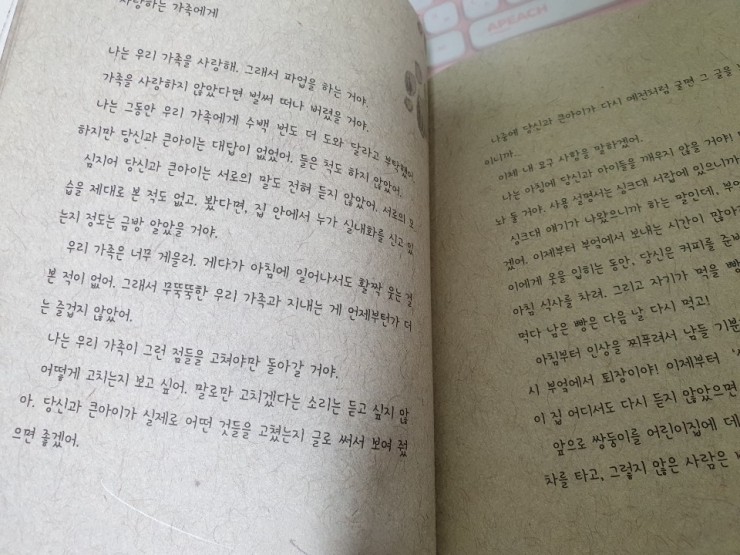 사랑하는 가족에게
나는 우리 가족을 사랑해. 그래서 파업을 하는 거야.
가족을 사랑하지 않았다면 벌써 떠나 버렸을 거야.
나는 그동안 우리 가족에게 수백 번도 더 도와 달라고 부탁했어.
하지만 당신과 큰아이는 대답이 없었어. 들은 척도 하지 않았어.
심지어 당신과 큰아이는 서로의 말도 전혀 듣지 않았어. 서로의 모
습을 제대로 본 적도 없고. 봤다면, 집 안에서 누가 실내화를 신고 있
는지 정도는 금방 알았을 거야.
우리 가족은 너무 게을러. 게다가 아침에 일어나서도 활짝 웃는 걸
본 적이 없어. 그래서 무뚝뚝한 우리 가족과 지내는 게 언제부턴가 더
는 즐겁지 않았어.
나는 우리 가족이 그런 점들을 고쳐야만 돌아갈 거야.
어떻게 고치는지 보고 싶어. 말로만 고치겠다는 소리는 듣고 싶지 않
아. 당신과 큰아이가 실제로 어떤 것들을 고쳤는지 글로 써서 보여 줬
으면 좋겠어.
APEACH
나중에 당신과 큰아이가 다시 예전처럼 굴면 그 글을
이니까.
이제 내 요구 사항을 말하겠어.
나는 아침에 당신과 아이들을 깨우지 않을 거야!
놔 둘 거야. 사용 설명서는 싱크대 서랍에 있으니까
싱크대 얘기가 나왔으니까 하는 말인데,
겠어. 이제부터 부엌에서 보내는 시간이
이에게 옷을 입히는 동안, 당신은 커피를
아침 식사를 차려. 그리고 자기가 먹을 빵
먹다 남은 빵은 다음 날 다시 먹고!
아침부터 인상을 찌푸려서 남들 기분
시 부엌에서 퇴장이야! 이제부터
이 집 어디서도 다시 듣지 않았으면
앞으로 쌍둥이를 어린이집에 데
차를 타고, 그렇지 않은 사람은